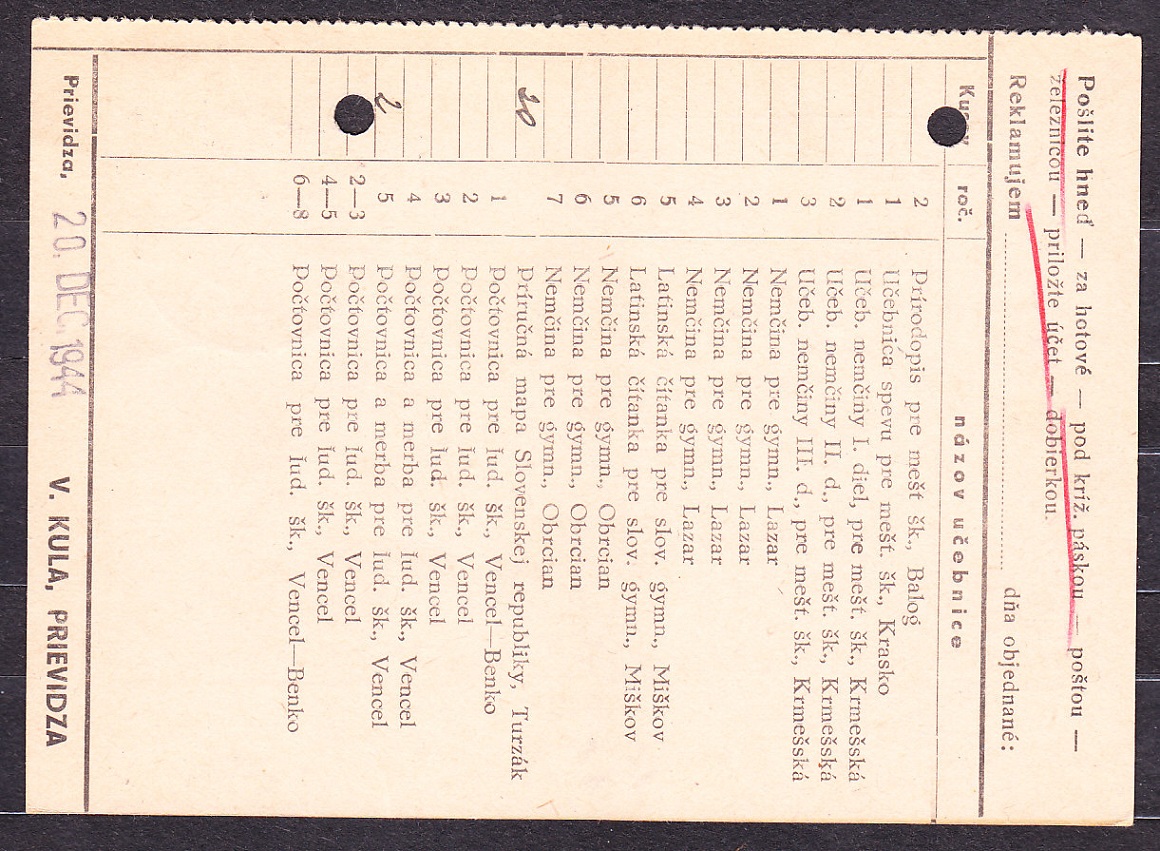 Pošlite hneď — za hotové — pod kríž. páskou — poštou —
železnicou — priložte účet — dobierkou.
Reklamujem .......... dňa objednané:
Kusov roč. názov učebnice
2 Prírodopis pre mešť šk., Balog
1 Učebnica spevu pre mešt. šk., Krasko
1 Učeb. nemčiny I. diel, pre mešt. šk., Krmešská
2 Učeb. nemčiny II. d., pre mešt. šk., Krmešská
3 Učeb. nemčiny III. d., pre mešt. šk., Krmešská
1 Nemčina pre gymn., Lazar
2 Nemčina pre gymn., Lazar
3 Nemčina pre gymn., Lazar
4 Nemčina pre gymn., Lazar
5 Latinská čítanka pre slov. gymn., Miškov
6 Latinská čítanka pre slov. gymn., Miškov
5 Nemčina pre gymn., Obrcian
6 Nemčina pre gymn., Obrcian
7 Nemčina pre gymn., Obrcian
20 Príručná mapa Slovenskej republiky, Turzák
1 Počtovnica pre ľud. šk., Vencel—Benko
2 Počtovnica pre ľud. šk., Vencel
3 Počtovnica pre ľud. šk., Vencel
4 Počtovnica a merba pre ľud. šk., Vencel
2 5 Počtovnica a merba pre ľud. šk., Vencel
2—3 Počtovnica pre ľud. šk., Vencel
4—5 Počtovnica pre ľud. šk., Vencel
6—8 Počtovnica pre ľud. šk., Vencel—Benko
Prievidza, 20. DEC. 1944 V. KULA, PRIEVIDZA